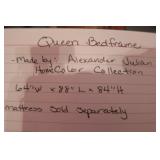 Queen Bedframe
- Made by: Alexander Julian
HomeColor Collection
64"W x 88"L x 84"H
mattress sold separately